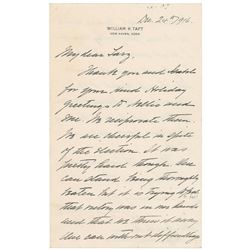 WILLIAM H. TAFT
NEW HAVEN, CONN
Dec 24th 1916.
My dear
Thank you and
for your kind Holiday
Greetings to Nellie and
me. We reciprocate them.
We are cheerful in spite
of the election. It was
pretty hard though. One
can stand being thoroughly
beaten but it is trying to feel
that victory was in our hands
and that we threw it away.
One can without difficulty